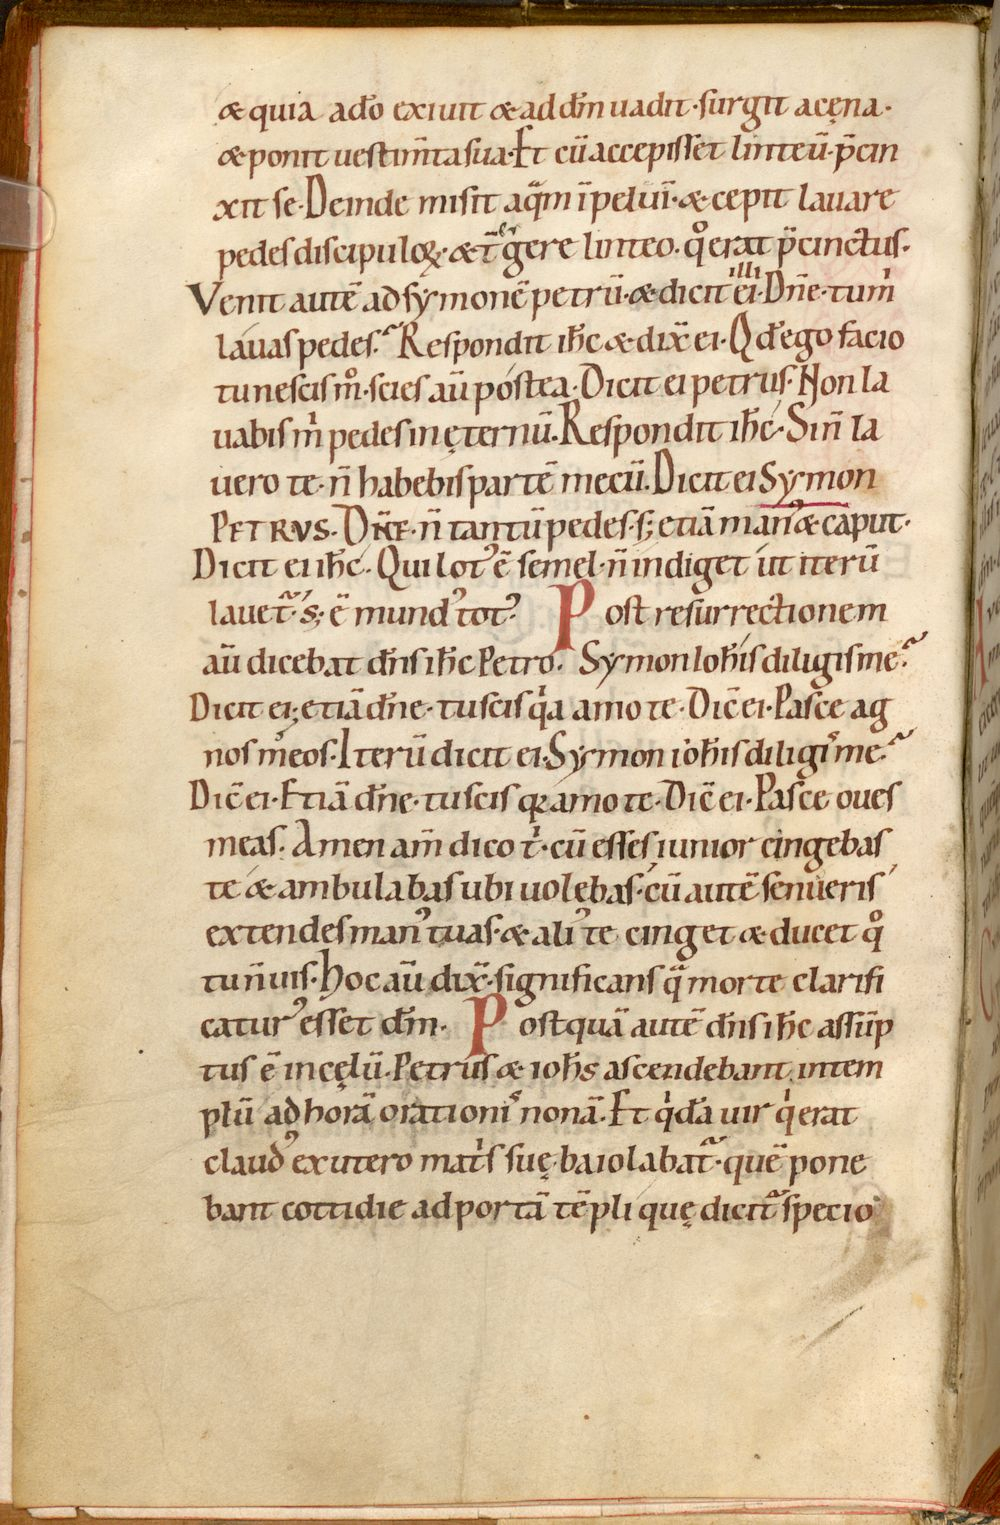 & quia ado̅ exiuit & ad dm̅ uadit · surgit acęna ·
& ponit uestim̅ta sua · Et cu̅ accepisset linteu̅ · p̅cin
xit se · Deinde misit aqͣm i̅peluı̅ · & cepit lauare
pedes discipuloꝝ · & t̅gͤre linteo · qͦ erat p̅cinctus ·
Venit aute̅ ad symone̅ petru̅ · & dicit illi ei · Dn̅e · tu mͥ
lauas pedes? Respondit ih̅c & dix̅ ei · Qd̅ ego facio
tu nescis mͦ · scies au̅ postea · Dicit ei petrus · Non la
uabis mͥ pedes in ęternu̅ · Respondit ih̅c · Si n̅ la
uero te · n̅ habebis parte̅ mecu̅ · Dicit ei Symon
PETRVS · Dn̅e · n̅ tantu̅ pedes · s; etia̅ man᾿ & caput ·
Dicit ei ih̅c · Qui lot᾿ e̅ semel · n̅ indiget ut iteru̅
lauet᷑ · s; e̅ mund᾿ tot᾿ Post resurrectionem
au̅ dicebat dn̅s ih̅c Petro · Symon Ioh̅is diligis me?
Dicit ei; etia̅ dn̅e · tu scis qͥa amo te · Dic̅ ei · Pasce ag
nos mͤos · Iteru̅ dicit ei · Symon ioh̅is diligi᾿ me?
Dic̅ ei · Etia̅ dn̅e · tu scis qꝛ amo te · Dic̅ ei · Pasce oues
meas · Amen am̅ dico tͥ · cu̅ esses iunior cingebas
te & ambulabas ubi uolębas · cu̅ aute̅ senueris
extendes man᾿ tuas · & ali᾿ te cinget & ducet qͦ
tu n̅ uis · Hoc au̅ dix̅ · significans qͣ morte clarifi
catur᾿ esset dm̅ · Postqua̅ aute̅ dn̅s ih̅c assu̅p
tus e̅ in cęlu̅ · Petrus & ioh̅s ascendebant in tem
plu̅ ad hora̅ orationi᾿ nona̅ · Et qͥda̅ uir qͥ erat
claud᾿ ex utero matͥs suę · baiolabat᷑ · que̅ pone
bant cottidie ad porta̅ te̅pli quę dicit᷑ specio